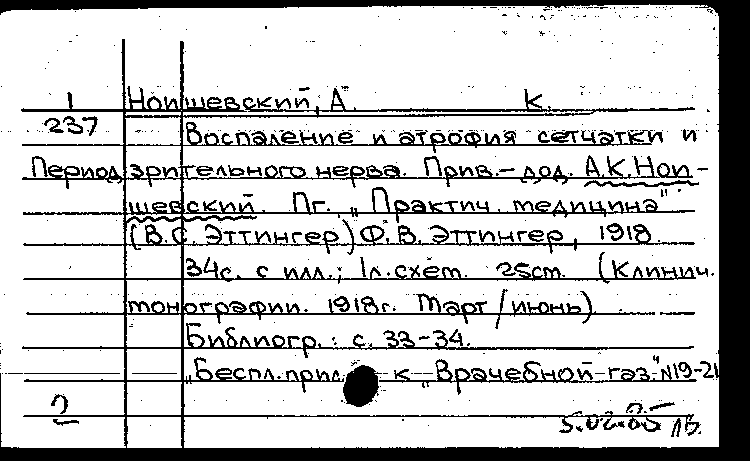 1 Ноишевский, А. К.
237 Воспаление и атрофия сетчатки и
Период зрительного нерва. Прив.-дод. А.К.Нои-
шевский. Пг. „Практич. медицина"
(В.С. Эттингер) Ф.В. Эттингер, 1918
34с. с илл.; 1л.схем. 25см. (Клинич.
монографии. 1918г. Март/июнь)
Библиогр.: с. 33-34.
„Беспл.прил. к „Врачебной газ." №19-21
2